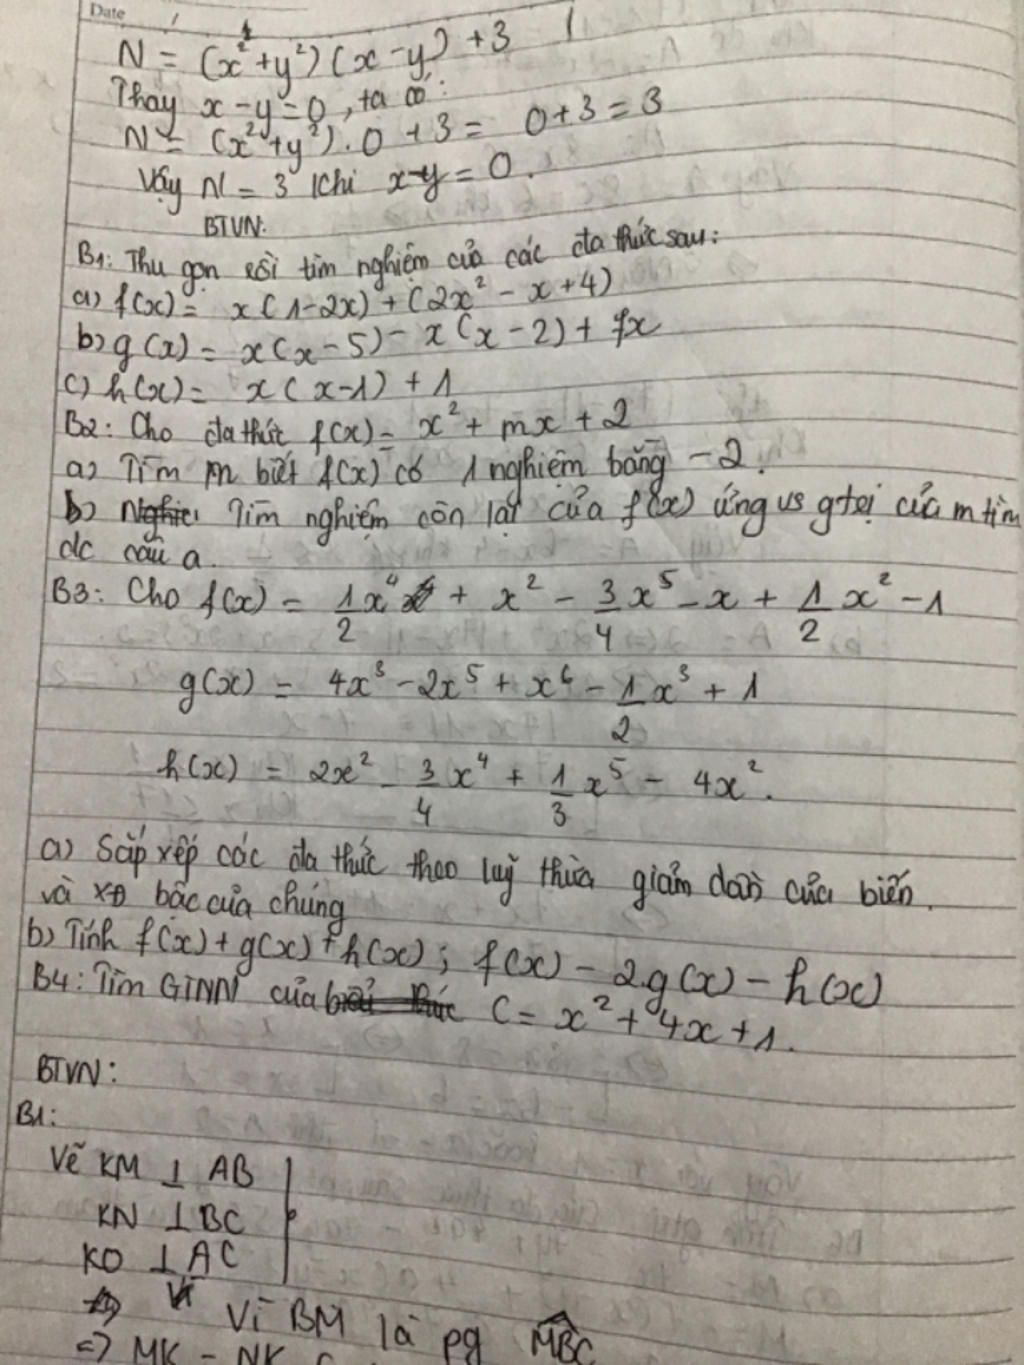 Date
N = (x² + y²)(x - y) + 3
Thay x - y = 0, ta có:
N = (x² + y²) . 0 + 3 = 0 + 3 = 3
Vậy N = 3 khi x - y = 0.
BTVN:
B1: Thu gọn rồi tìm nghiệm của các đa thức sau:
a) f(x) = x(1 - 2x) + (2x² - x + 4)
b) g(x) = x(x - 5) - x(x - 2) + 7x
c) h(x) = x(x - 1) + 1
B2: Cho đa thức f(x) = x² + mx + 2
a) Tìm m biết f(x) có 1 nghiệm bằng -2.
b) Tìm nghiệm còn lại của f(x) ứng vs gtrị của m tìm
đc câu a.
B3: Cho f(x) = 1/2 x⁴ + x² - 3/4 x⁵ - x + 1/2 x² - 1
g(x) = 4x³ - 2x⁵ + x⁶ - 1/2 x³ + 1
h(x) = 2x² - 3/4 x⁴ + 1/3 x⁵ - 4x².
a) Sắp xếp các đa thức theo luỹ thừa giảm dần của biến
và XĐ bậc của chúng
b) Tính f(x) + g(x) + h(x); f(x) - 2g(x) - h(x)
B4: Tìm GTNN của C = x² + 4x + 1.
BTVN:
B1:
Vẽ KM ⊥ AB
KN ⊥ BC
KO ⊥ AC
Vì BM là pg MBC
=> MK = NK